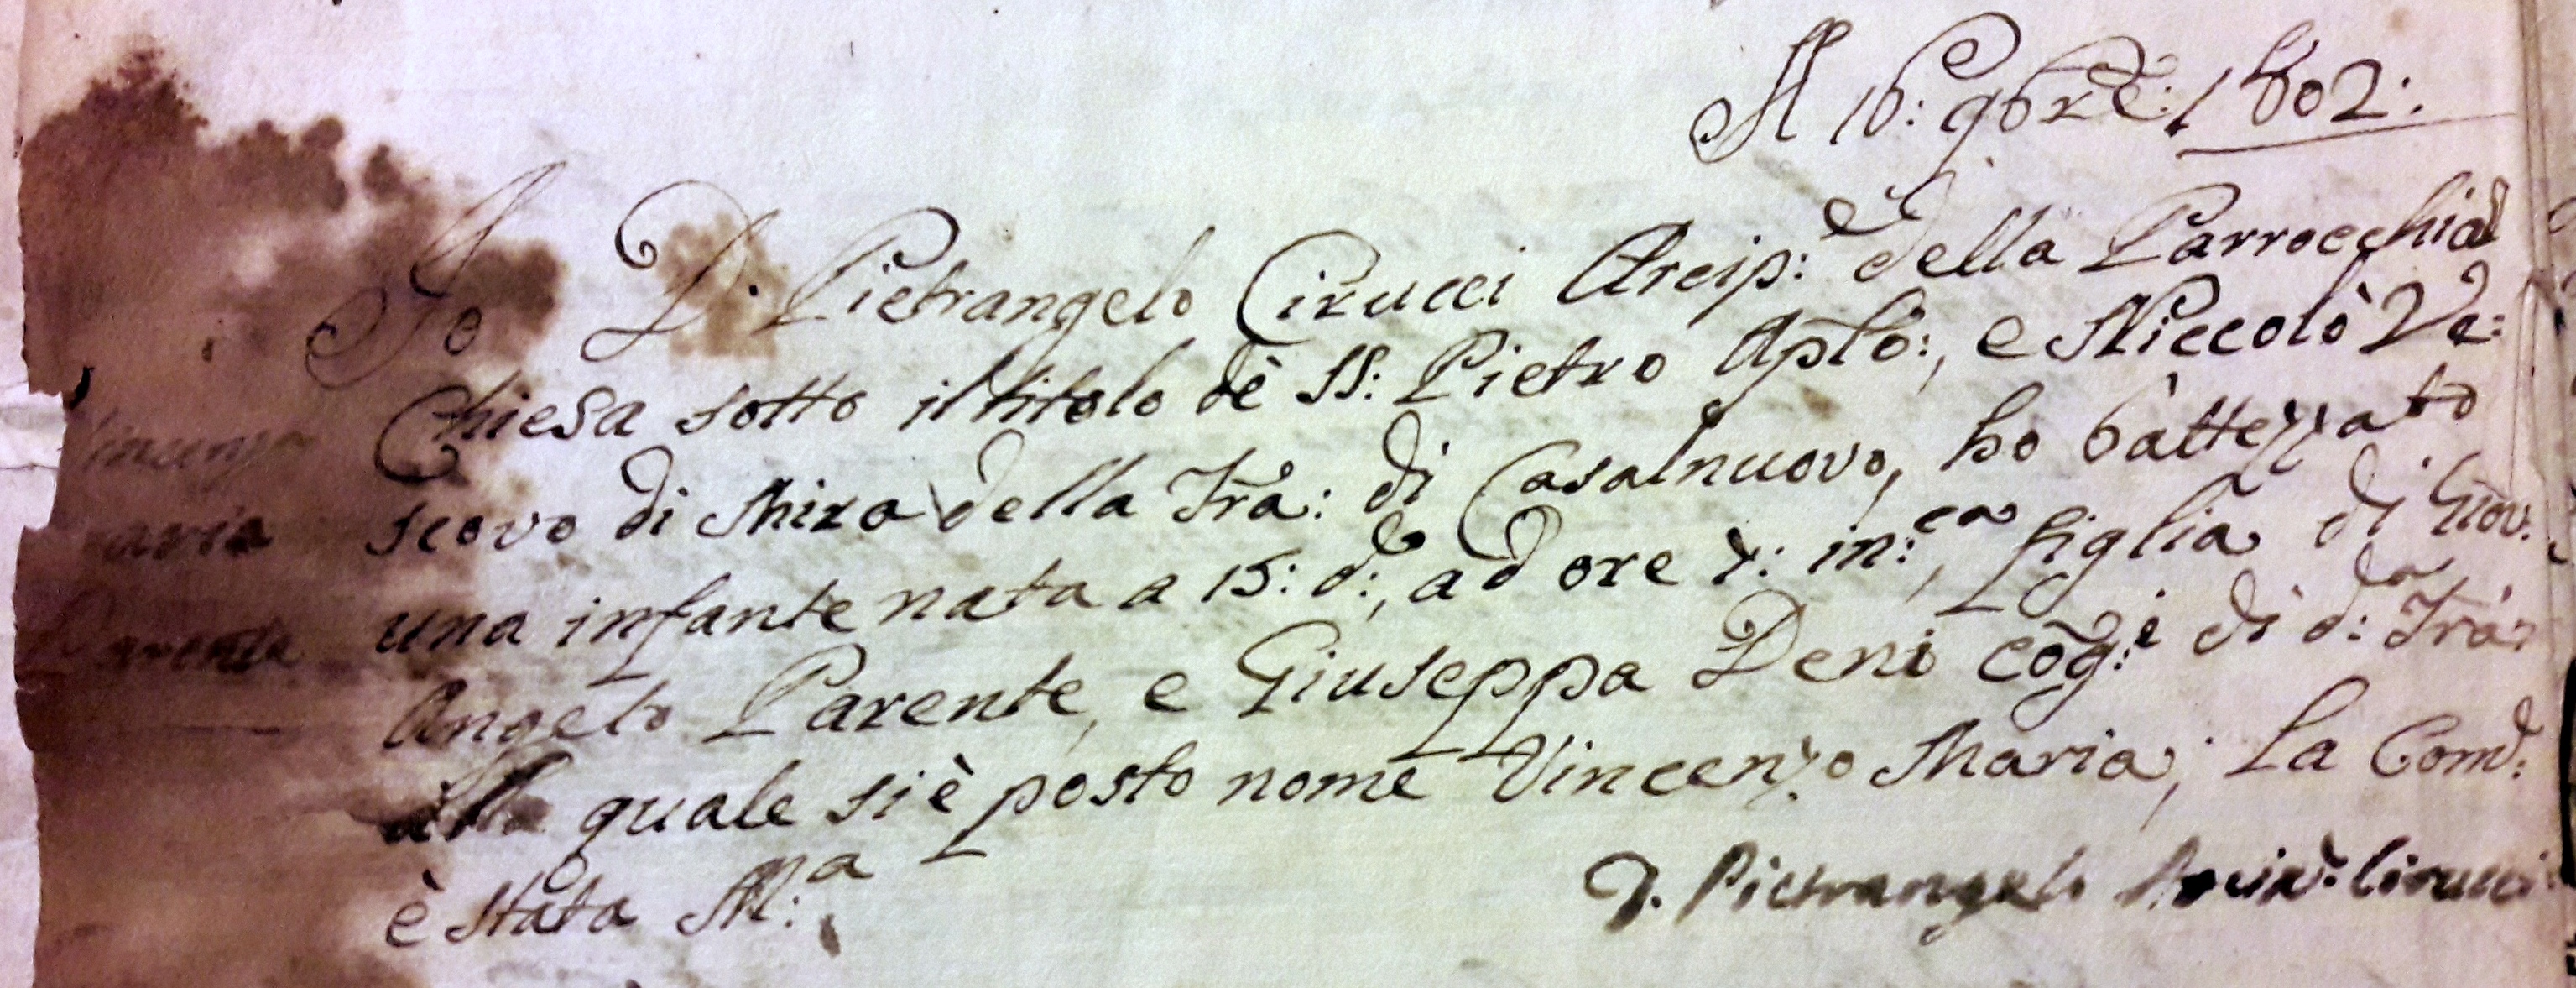 A 16: 9bre: 1802:
Io D. Pietrangelo Cirucci Arcip:e della Parrocchial
Chiesa sotto il titolo dè SS: Pietro Aplo:, e Niccolò Ve:
scovo di Mira della Tra: di Casalnuovo, ho battezzato
una infante nata a 15: do:, ad ore 7: in:ca, figlia di Giov:
Angelo Parente, e Giuseppa Deni cog:i di d:a Tra:
alla quale si è posto nome Vincenza Maria; La Com:
è stata M:a
D. Pietrangelo Cirucci
Vincenza
aria
Parente